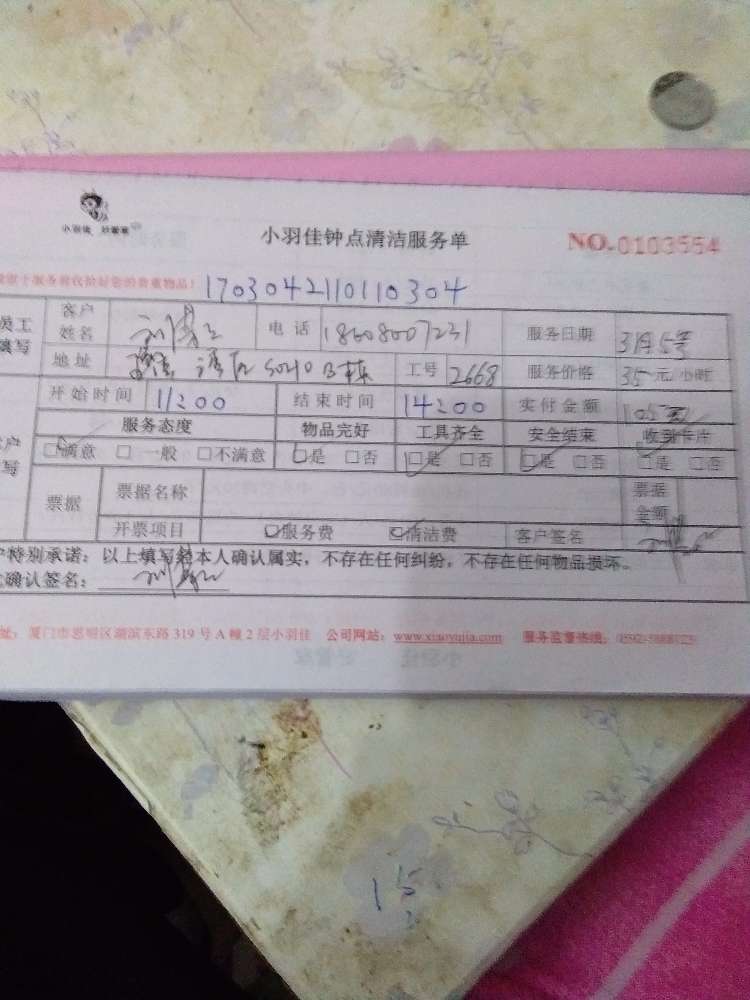 小羽佳
小羽佳钟点清洁服务单
NO.0103554
1703042110110304
员工填写
客户姓名 电话 18608007231 服务日期 3月5号
地址 SOHO B栋 工号 2668 服务价格 35元/小时
开始时间 11:00 结束时间 14:00 实付金额 105元
服务态度 物品完好 工具齐全 安全结束 收到卡片
☑满意 □一般 □不满意 ☑是 □否 ☑是 □否 ☑是 □否 ☑是 □否
票据 票据名称 票据金额
开票项目 □服务费 ☑清洁费 客户签名
特别承诺：以上填写经本人确认属实，不存在任何纠纷，不存在任何物品损坏。
确认签名：
址：厦门市思明区湖滨东路319号A幢2层小羽佳 公司网站：www.xiaoyujia.com 服务监督热线：
15